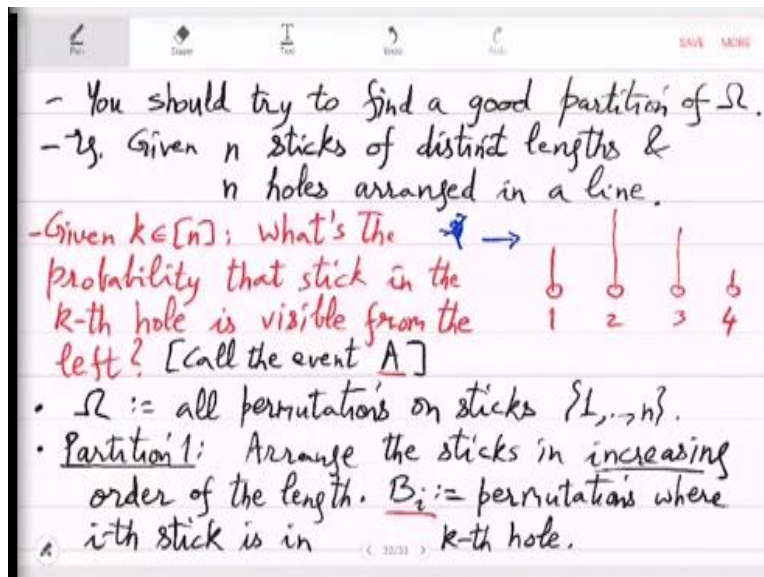 SAVE MORE
- You should try to find a good partition of Ω.
- Eg. Given n sticks of distinct lengths &
n holes arranged in a line.
- Given k∈[n]; what's the
probability that stick in the
k-th hole is visible from the
left? [Call the event A]
→
1 2 3 4
• Ω := all permutations on sticks {1,..,n}.
• Partition 1: Arrange the sticks in increasing
order of the length. B_i := permutations where
i-th stick is in k-th hole.
< 30/31 >